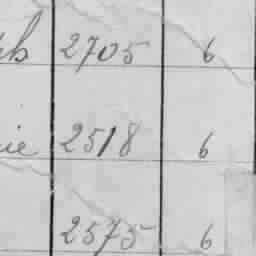 2705 6
2518 6
2575 6